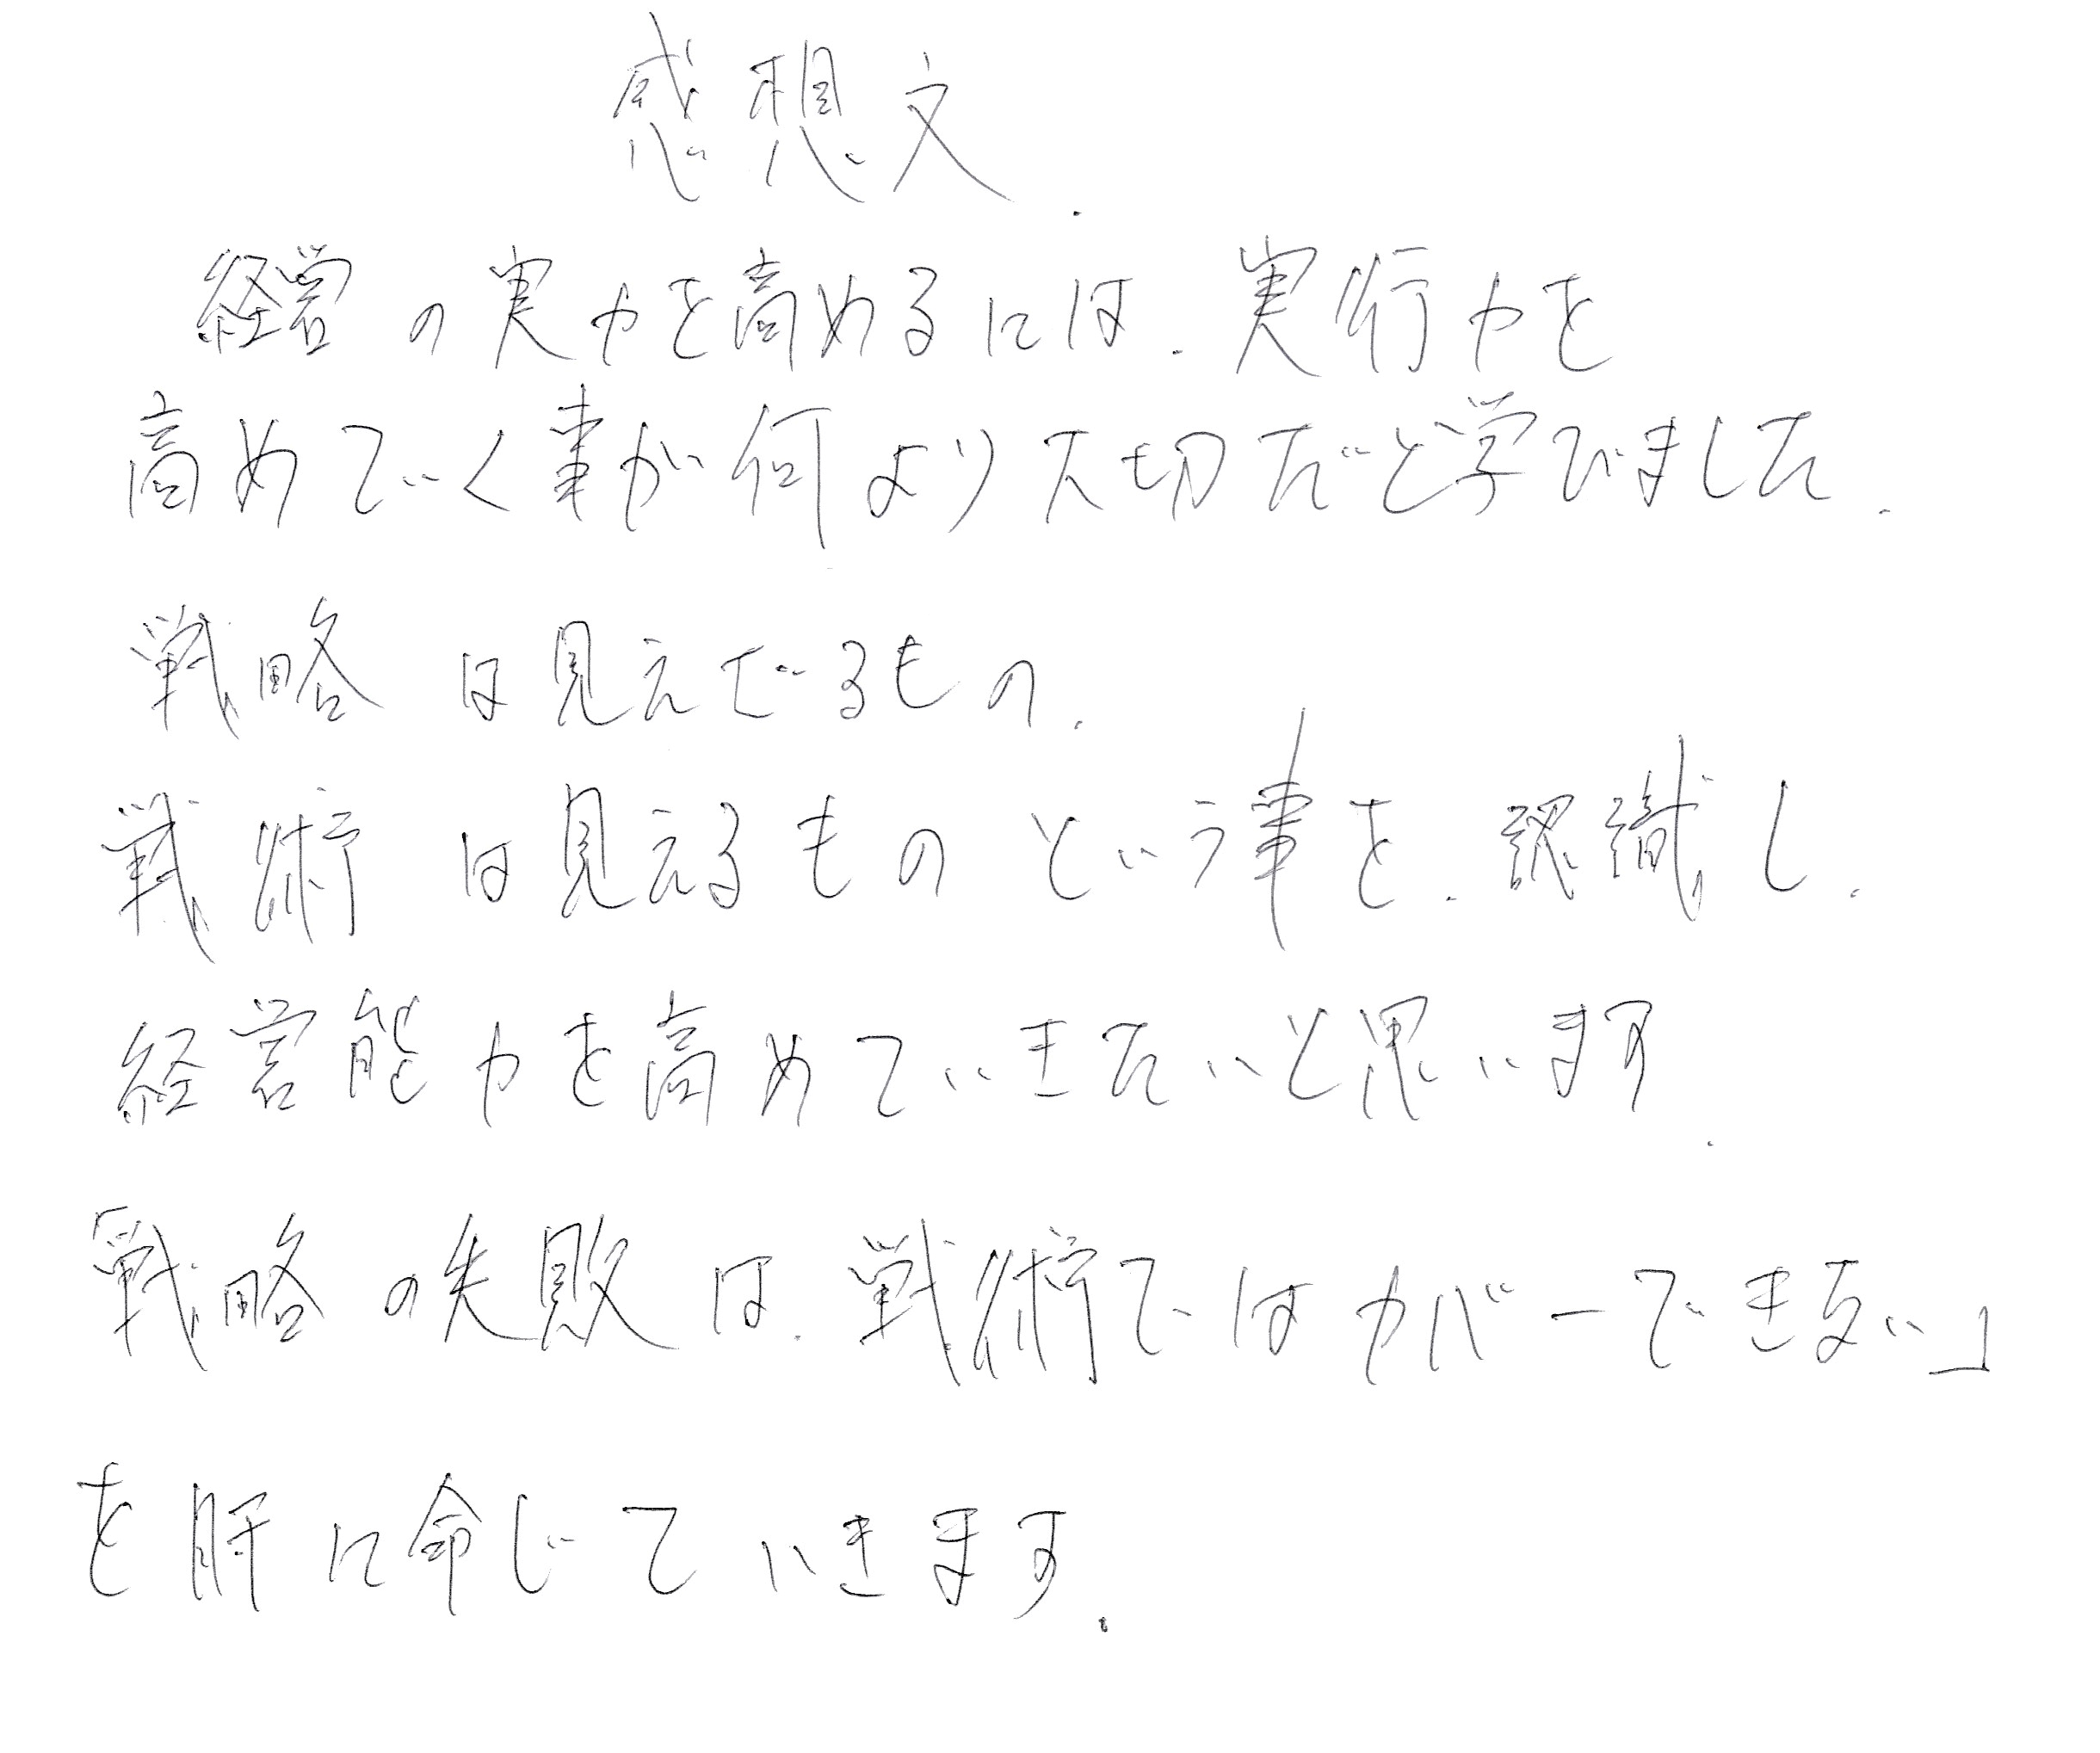 感想文.
経営の実力を高めるには.実行力を
高めていく事が何より大切だと学びました.
戦略は見えざるもの.
戦術は見えるものという事を.認識し.
経営能力を高めていきたいと思います.
「戦略の失敗は.戦術ではカバーできない」
を肝に命じていきます.